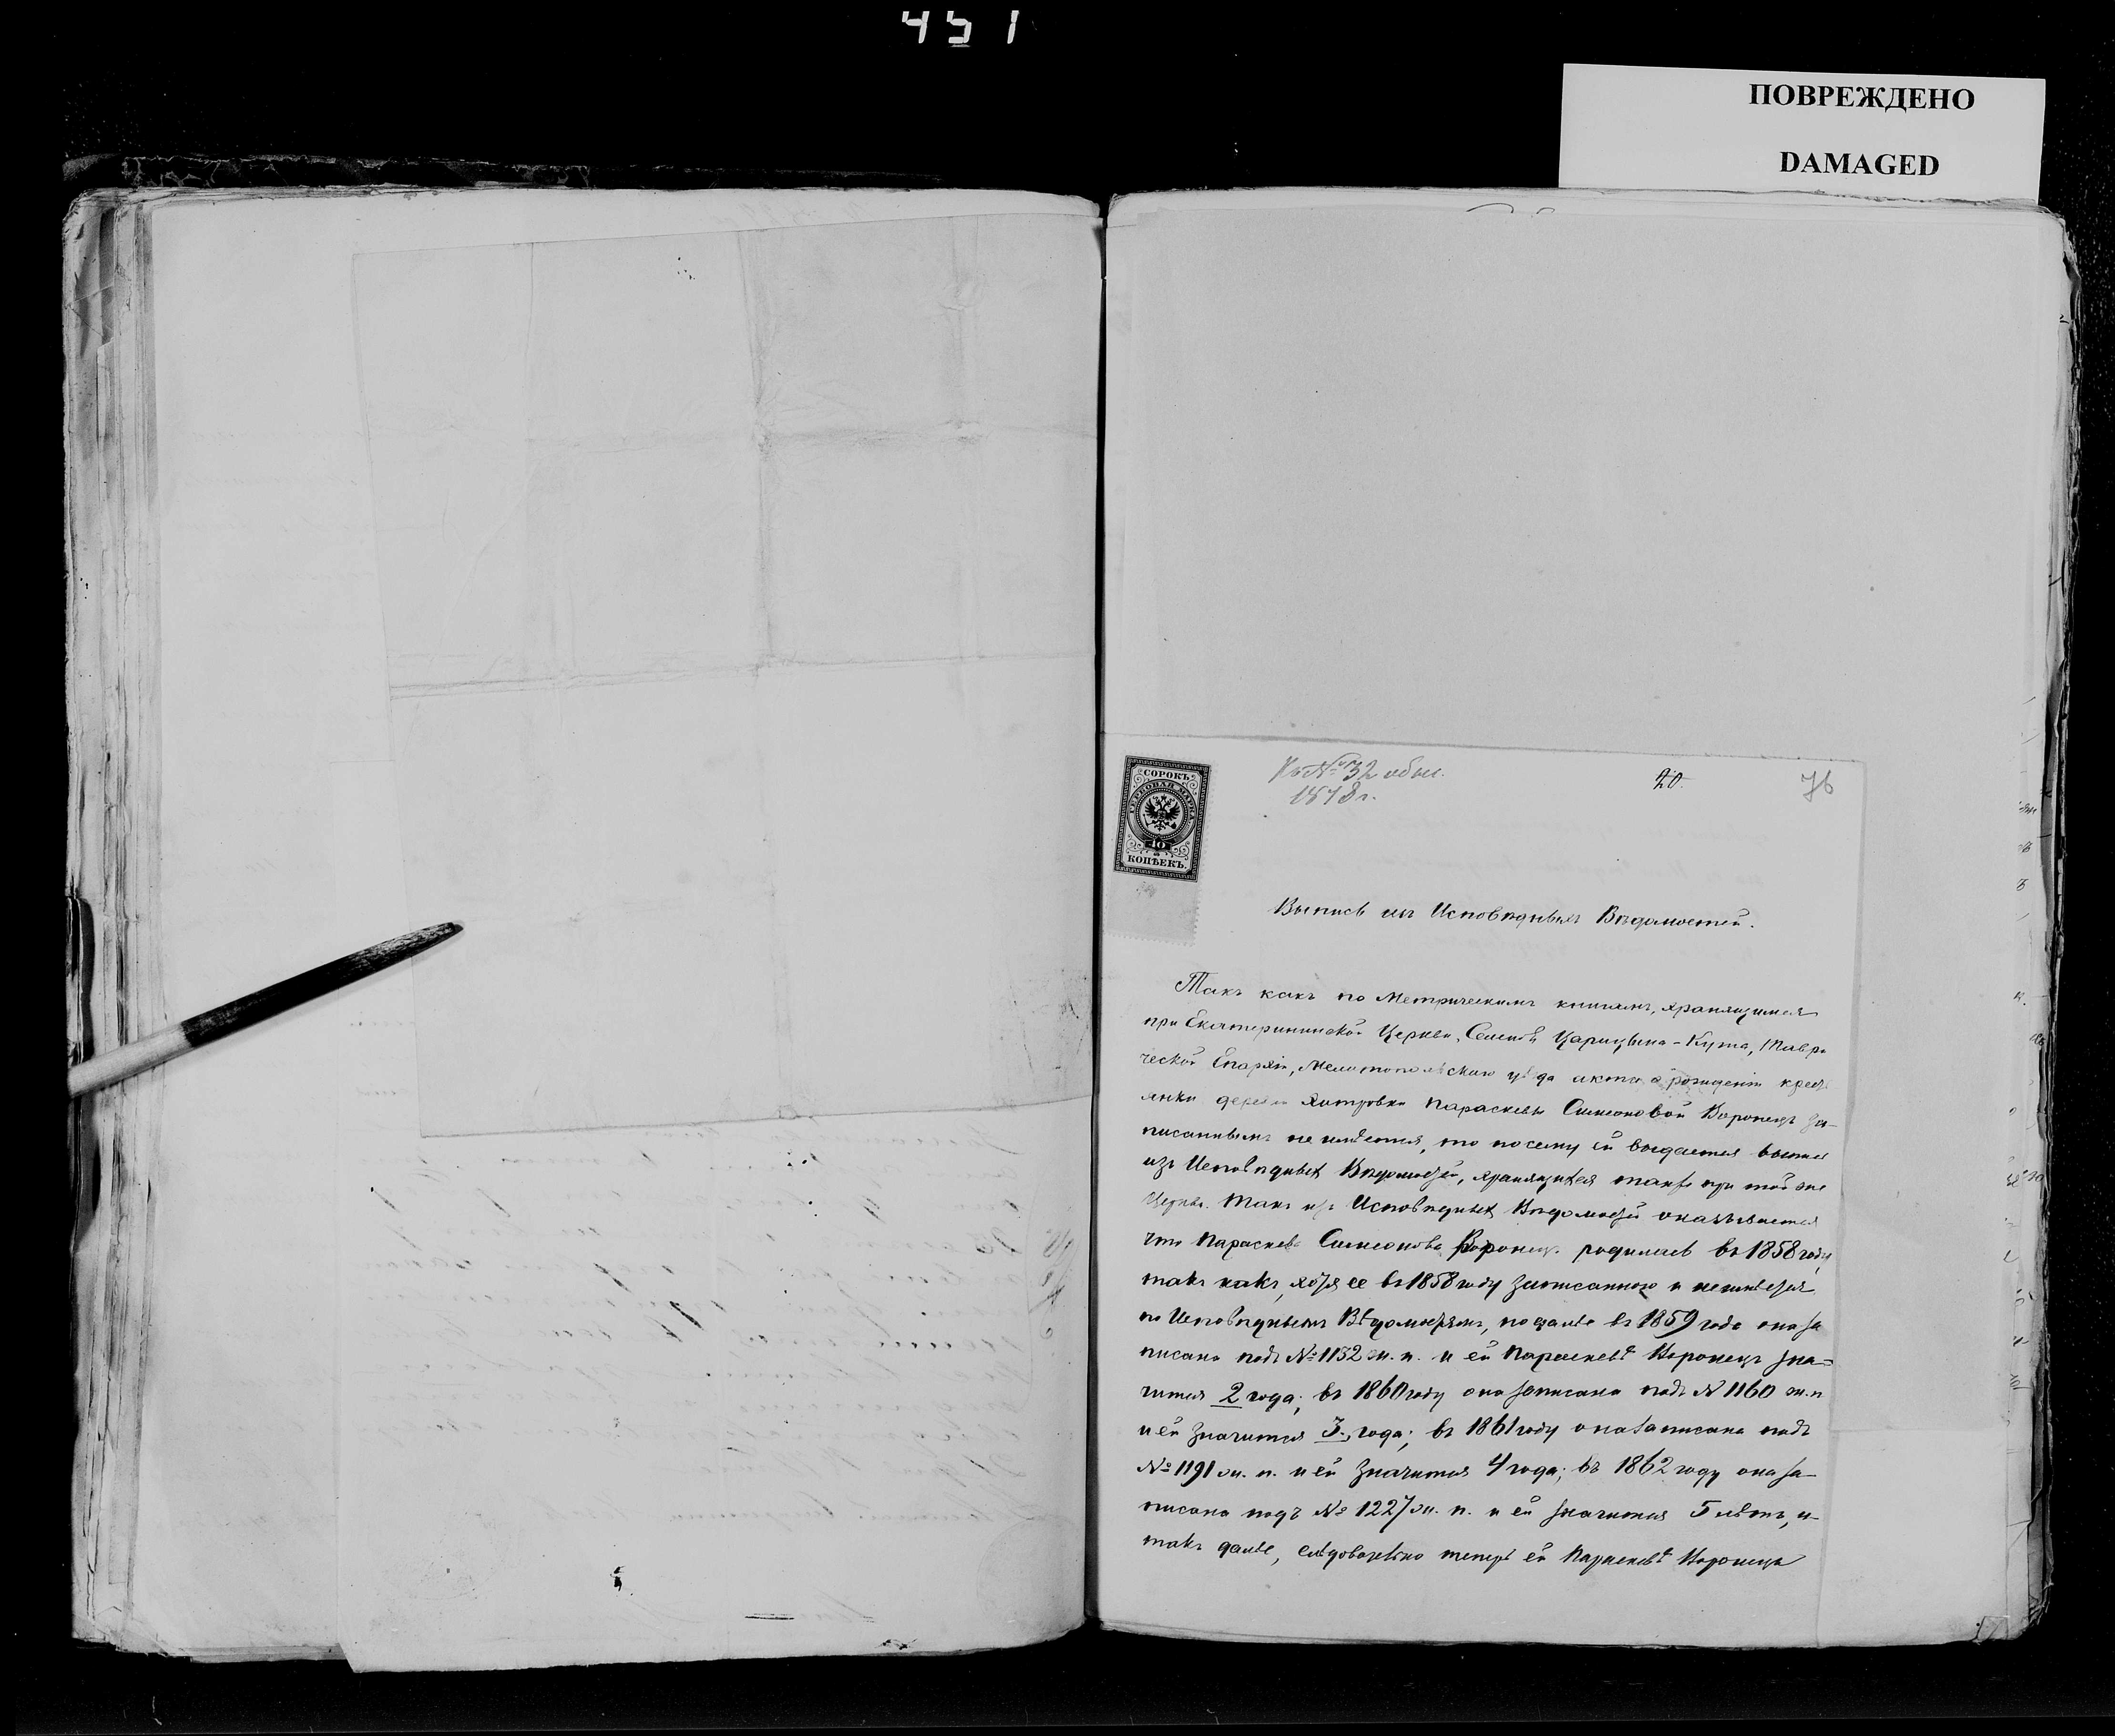 451
ПОВРЕЖДЕНО
DAMAGED
№ 32 обыс.
1878 г.
20.
76
СОРОКЪ
ГЕРБОВАЯ МАРКА
40
КОПѢЕКЪ.
Выпись изъ Исповѣдныхъ Вѣдомостей.
Такъ какъ по Метрическимъ книгамъ, хранящимся
при Екатерининской Церкви, Селенія Царицына-Кута, Таври
ческой Епархіи, Мелитопольскаго уѣзда акта о рожденіи крест
янки деревни Параскевы Симеоновой Воронецъ за-
писаннымъ не имѣется, то посему ей выдается выпись
изъ Исповѣдныхъ Вѣдомостей, хранящихся также при той же
Церкви. Такъ изъ Исповѣдныхъ Вѣдомостей оказывается
что Параскева Симеонова Воронецъ родилась въ 1858 году,
такъ какъ, хотя ее въ 1858 году записанною и не имѣется
по Исповѣднымъ Вѣдомостямъ, но далѣе въ 1859 года она за
писана подъ № 1132 ж. п. и ей Параскевѣ Воронецъ зна-
чится 2 года; въ 1860 году она записана подъ № 1160 ж. п
и ей значится 3. года; въ 1861 году она записана подъ
№ 1191 ж. п. и ей значится 4 года; въ 1862 году она за-
писана подъ № 1227 ж. п. и ей значится 5 лѣтъ, и
такъ далѣе, слѣдовательно теперь ей Параскевѣ Воронецъ